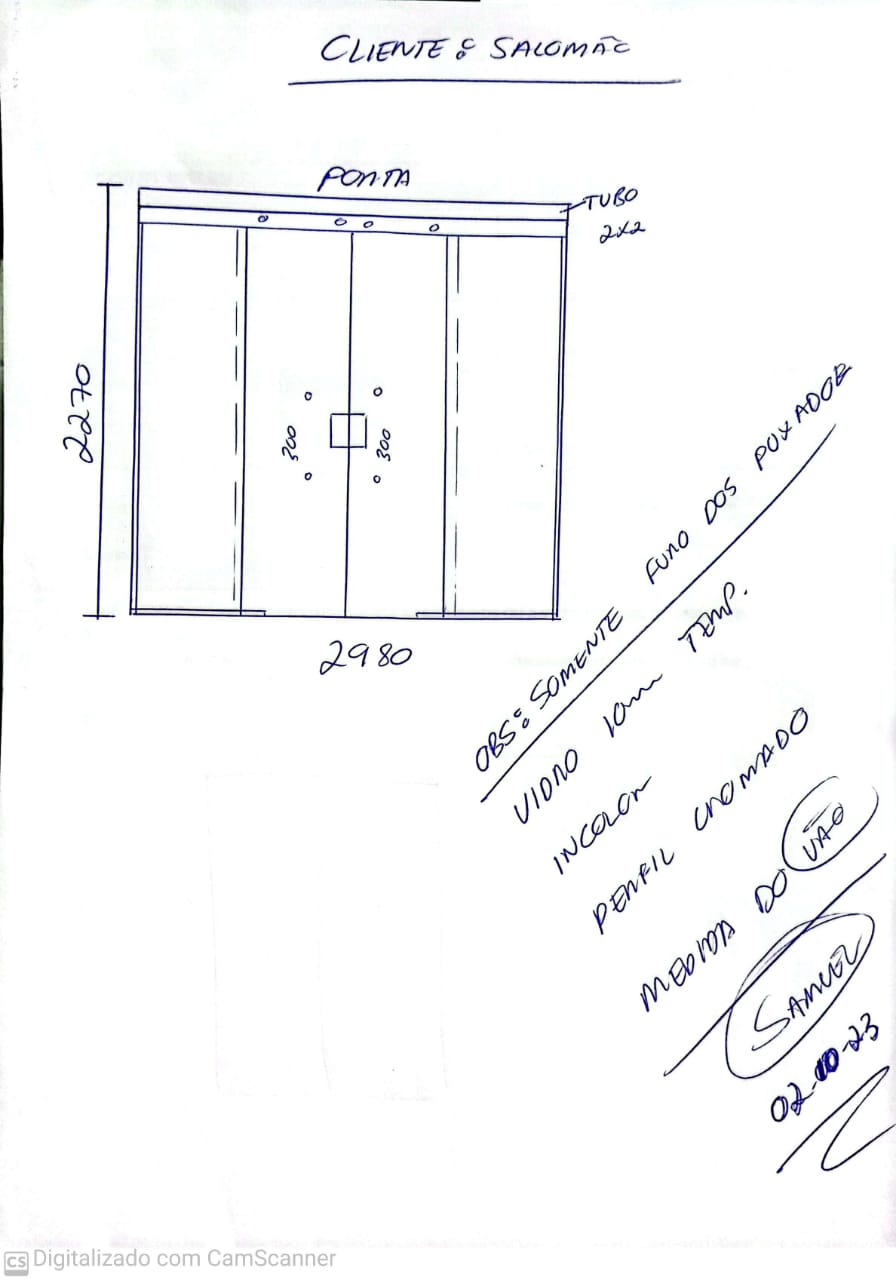 CLIENTE: SALOMÃO
PORTA
TUBO
2x2
2270
300
300
2980
OBS: SOMENTE FURO DOS PUXADOR
VIDRO 10mm TEMP.
INCOLOR
PERFIL CROMADO
MEDIDA DO VÃO
SAMUEL
02-10-23
CS Digitalizado com CamScanner